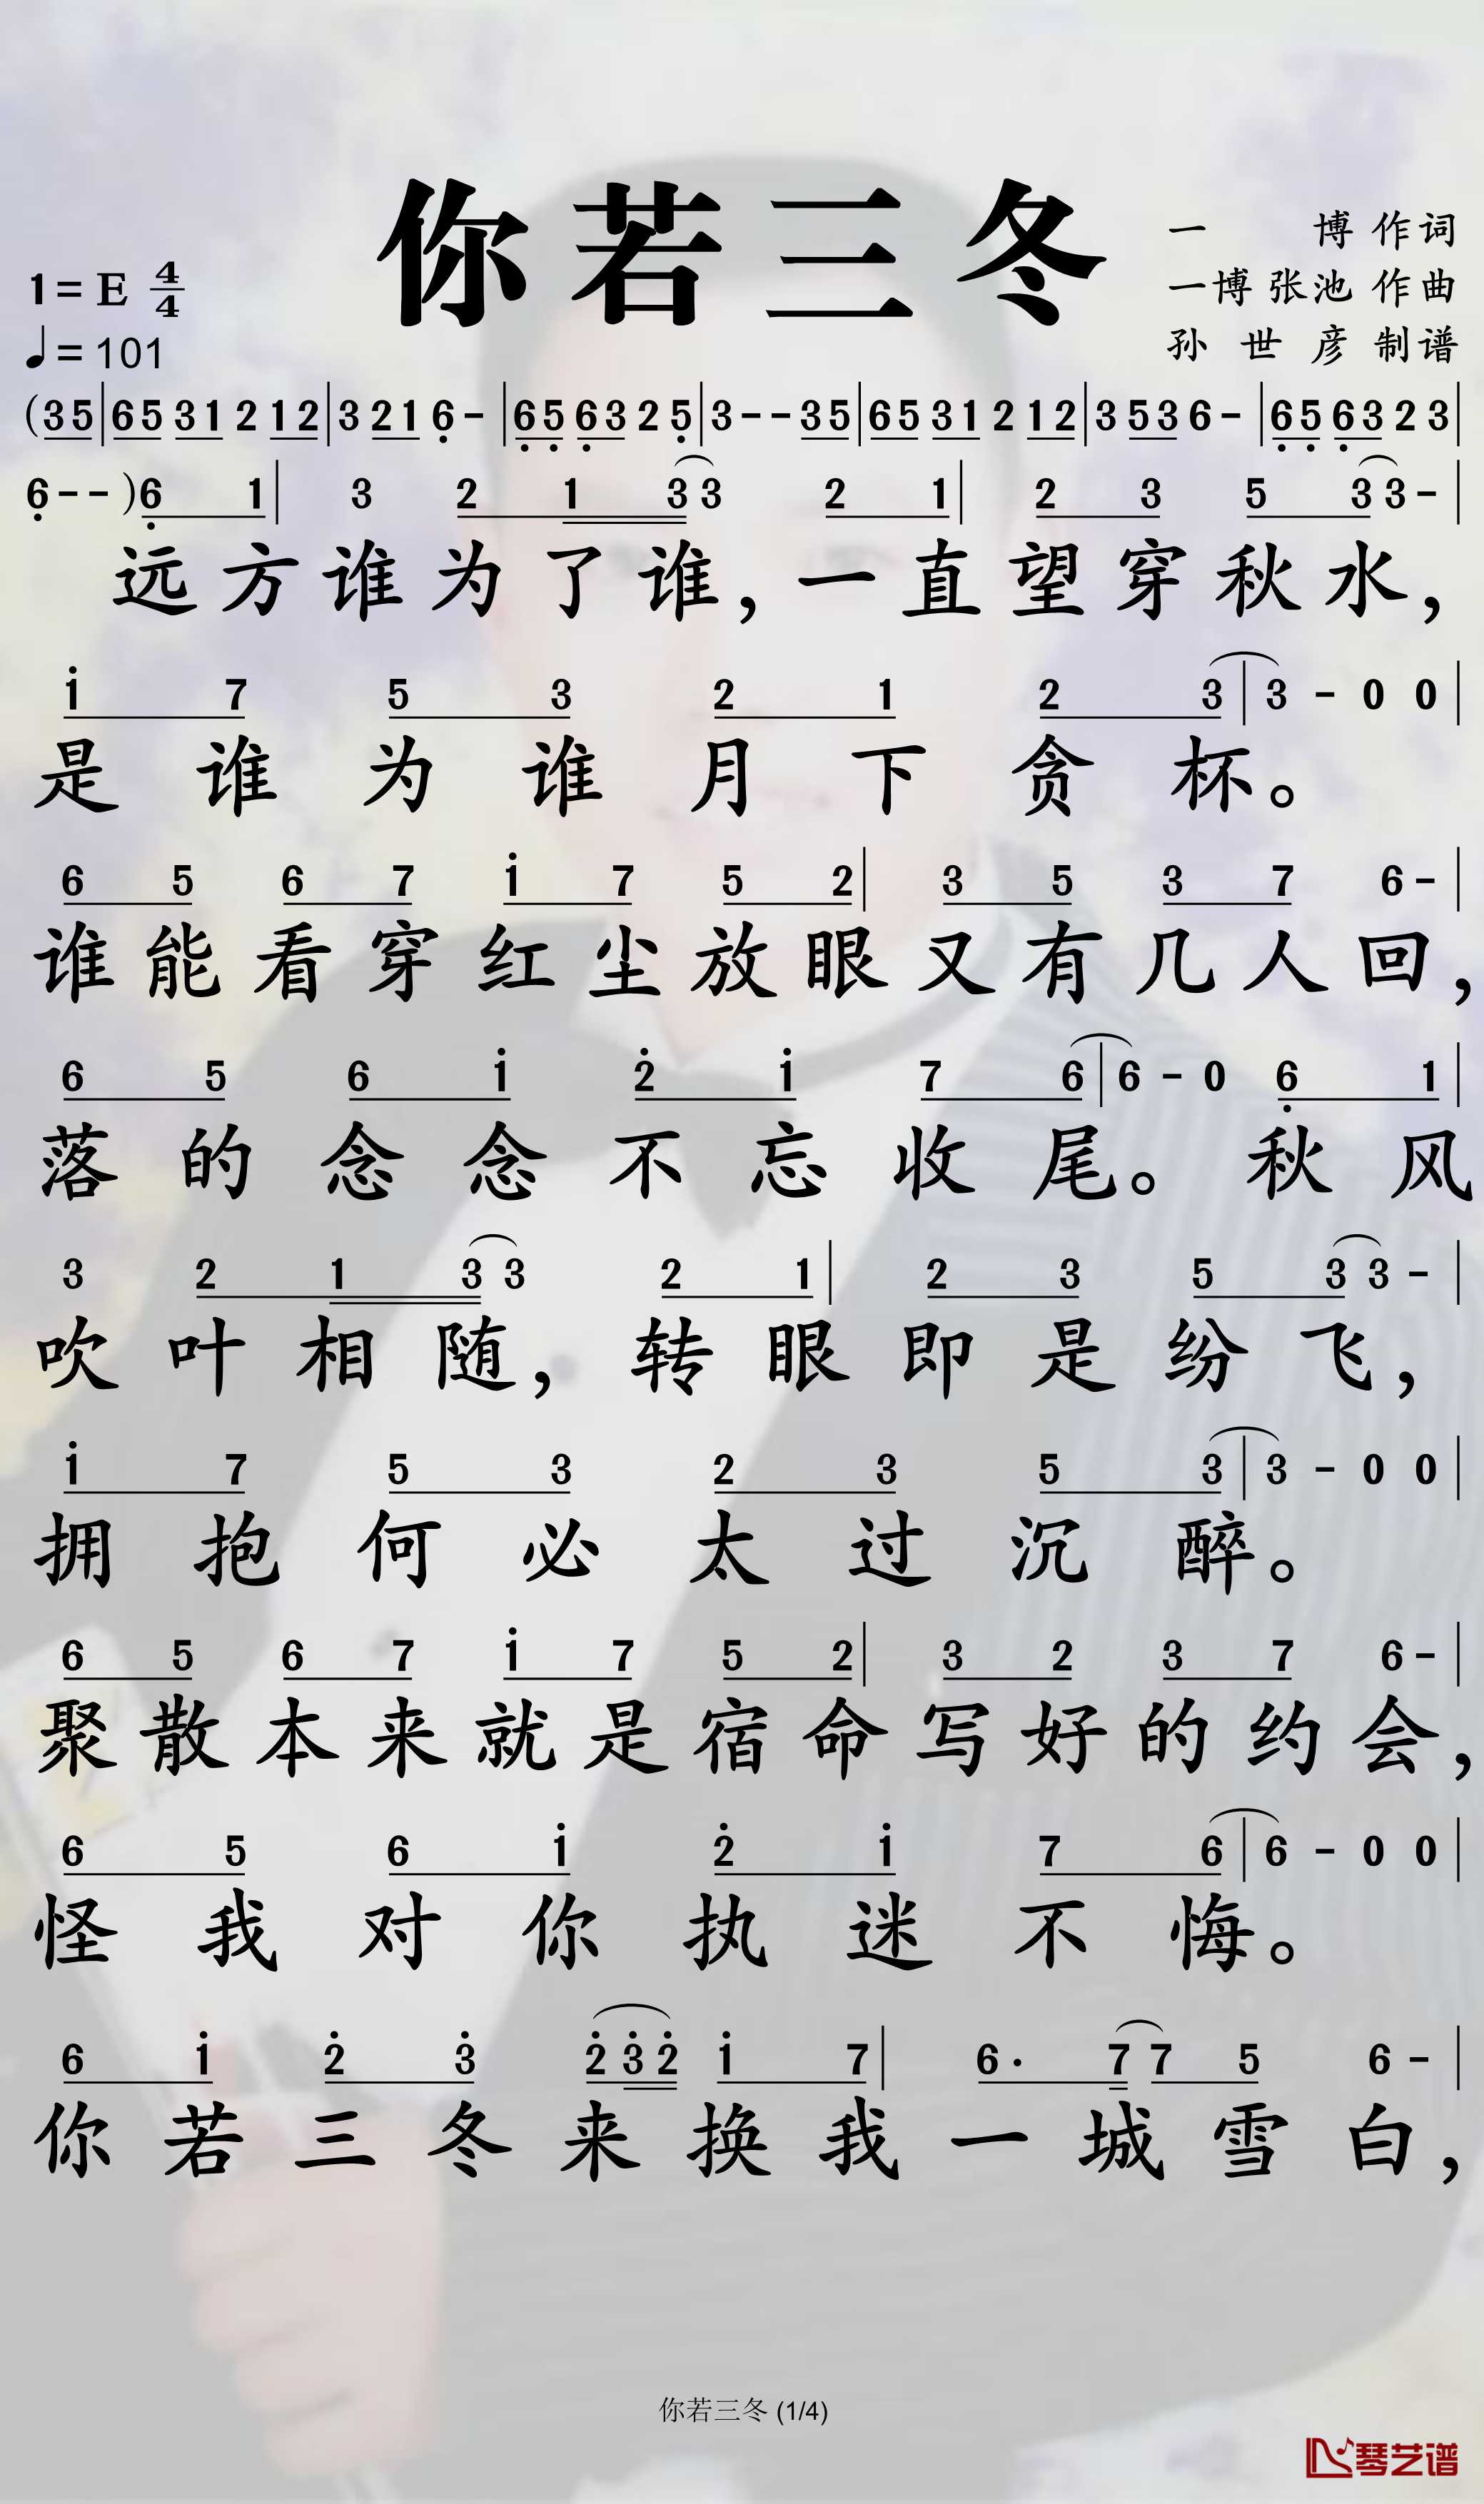 你若三冬
一 博 作词
1=E 4/4
一博 张池 作曲
♩=101
孙世彦 制谱
(35|65 31 2 12|321 6-|65 63 2 5|3--35|65 31 2 12|353 6-|65 63 2 3|
6--)6 1|3 2 1 33 2 1|2 3 5 33-|
远方谁为了谁，一直望穿秋水，
i 7 5 3 2 1 2 3|3-00|
是谁为谁月下贪杯。
6 5 6 7 i 7 5 2|3 5 3 7 6-|
谁能看穿红尘放眼又有几人回，
6 5 6 i 2 i 7 6|6-0 6 1|
落的念念不忘收尾。秋风
3 2 1 33 2 1|2 3 5 33-|
吹叶相随，转眼即是纷飞，
i 7 5 3 2 3 5 3|3-00|
拥抱何必太过沉醉。
6 5 6 7 i 7 5 2|3 2 3 7 6-|
聚散本来就是宿命写好的约会，
6 5 6 i 2 i 7 6|6-00|
怪我对你执迷不悔。
6 i 2 3 232 i 7|6· 77 5 6-|
你若三冬来换我一城雪白，
你若三冬 (1/4)
琴艺谱